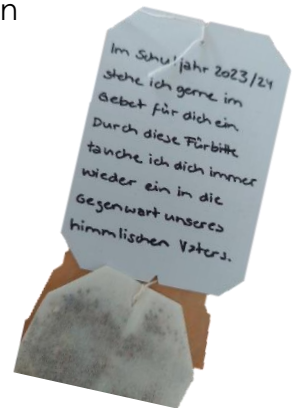 n
Im Schuljahr 2023/24
stehe ich gerne im
Gebet für dich ein
Durch diese Fürbitte
tauche ich dich immer
wieder ein in die
Gegenwart unseres
himmlischen Vaters.